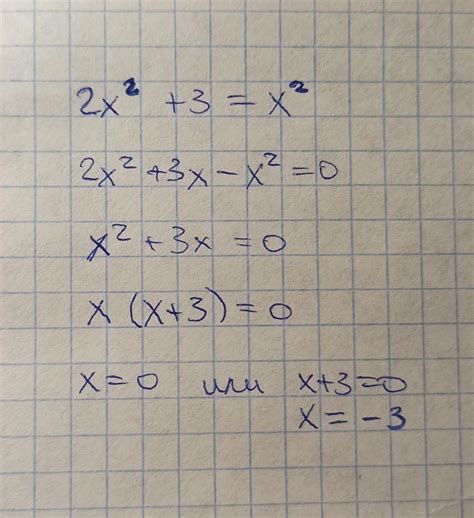 2x² +3 = x²
2x² +3x - x² = 0
x² + 3x = 0
x (x+3) = 0
x = 0 или x+3=0
x = -3